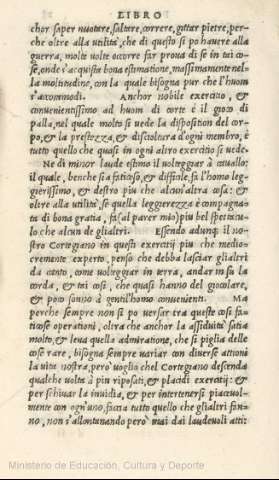 LIBRO
chor saper nuotare, saltere, correre, gittar pietre, per-
che oltre alla utilità, che di questo si po hauere alla
guerra, molte uolte occorre far proua di se in tai co-
se, onde s'acquista bona estimatione, massimamente nel-
la moltitudine, con la quale bisogna pur che l'huom
s'accommodi. Anchor nobile exercitio, &
conuenientissimo ad huom di corte è il gioco di
palla, nel quale molto si uede la disposition del cor-
po, & la prestezza, & discioltura d'ogni membro, &
tutto quello che quasi in ogni altro exercitio si uede.
Ne di minor laude estimo il uolteggiar à cauallo:
il quale, benche sia fatitoso, & difficile, fa l'homo leg-
gierissimo, & destro piu che alcun'altra cosa: &
oltre alla utilità, se quella leggierezza è compagna-
ta di bona gratia, fa (al parer mio) piu bel spettacu-
lo che alcun de glialtri. Essendo adunq; il no-
stro Cortegiano in questi exercitij piu che medio-
cremente experto, penso che debba lasciar glialtri
da canto, come uolteggiar in terra, andar in su la
corda, & tai cose, che quasi hanno del giocolare,
& poco sonno à gentil'homo conuenienti. Ma
perche sempre non si po uersar tra queste cosi fa-
ticose operationi, oltra che anchor la assiduità satia
molto, & leua quella admiratione, che si piglia delle
cose rare, bisogna sempre uariar con diuerse attioni
la uita nostra, però uoglio chel Cortegiano descenda
qualche uolta à piu riposati, & placidi exercitij: &
per schiuar la inuidia, & per intertenersi piaceuol-
mente con ogn'uno, faccia tutto quello che glialtri fan-
no, non s'allontanando però mai dai laudeuoli atti:
Ministerio de Educación, Cultura y Deporte